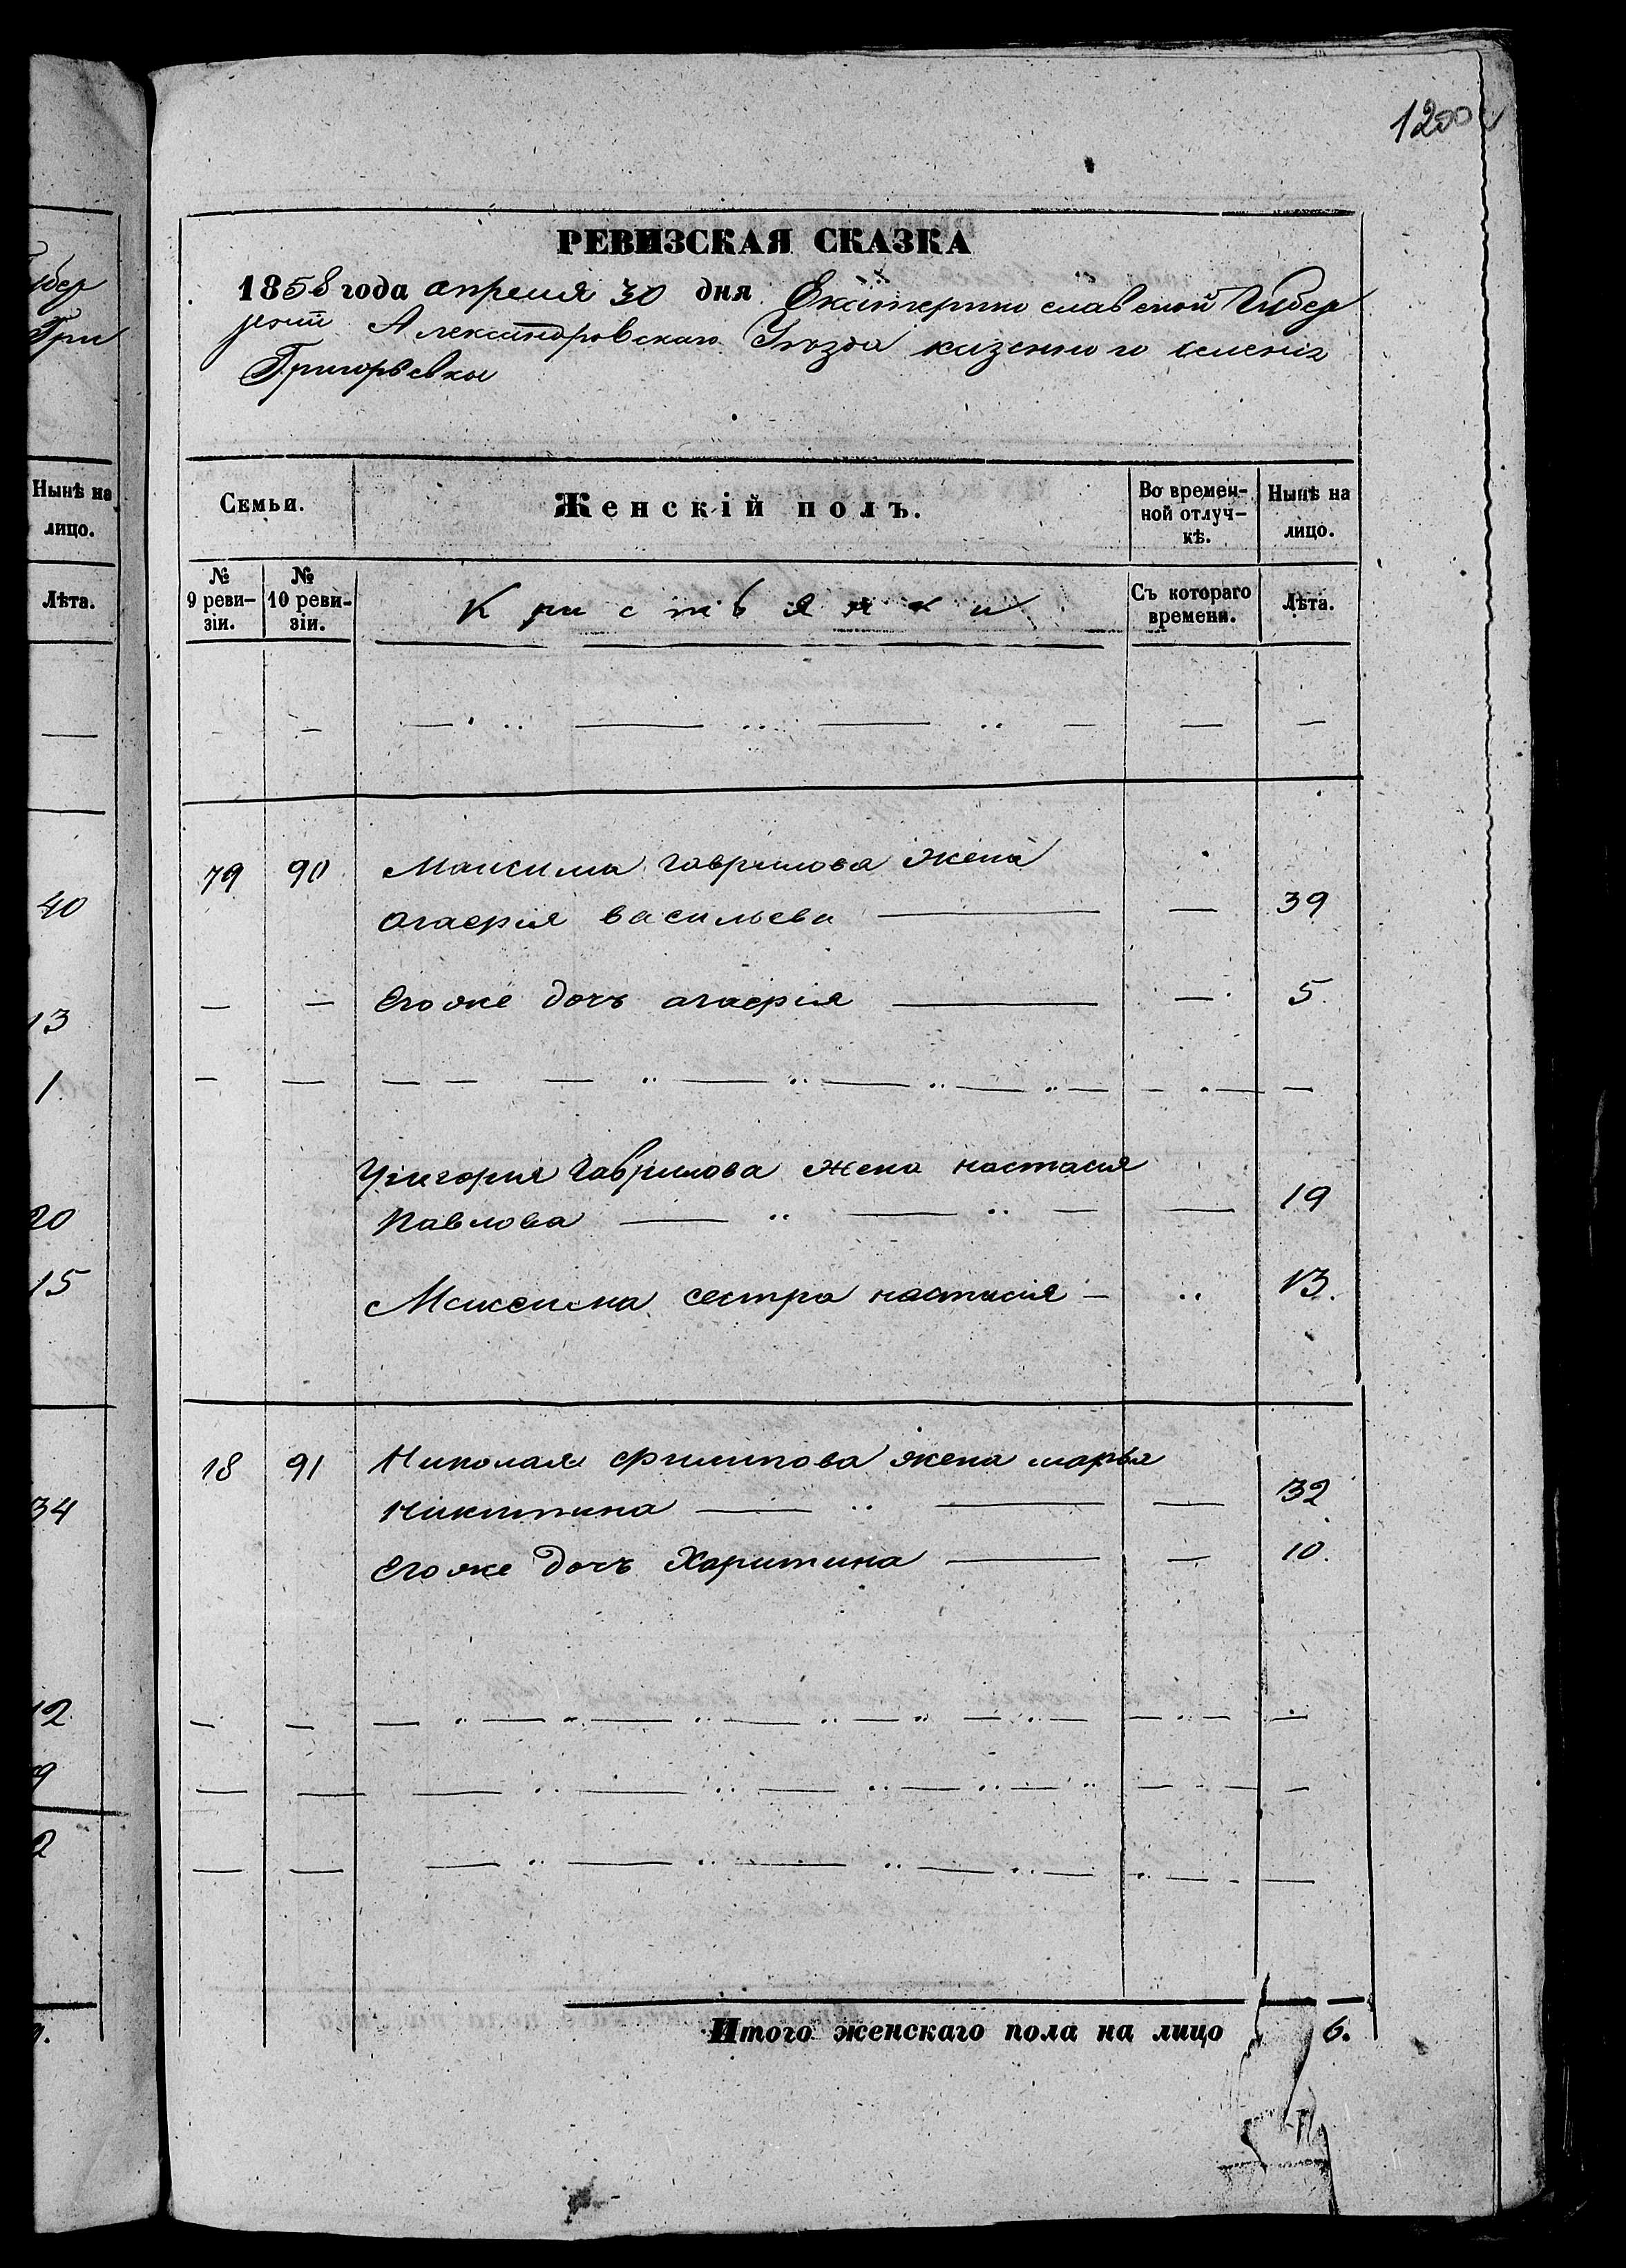 1200
РЕВИЗСКАЯ СКАЗКА
1858 года апреля 30 дня Екатеринославской Губер
нии Александровскаго Уѣзда казенного селения
Григорьевки
Семьи.
Женскій полъ.
Во времен-
ной отлуч-
кѣ.
Нынѣ на
лицо.
№
9 реви-
зіи.
№
10 реви-
зіи.
Кристьянки
Съ котораго
времени.
Лѣта.
79 90 Максима гаврилова жена
Агафия васильева — — 39
— — Егоже дочь агафия — — 5.
Григория Гаврилова жена настасия
Павлова — — — 19
Максима сестра настасия — 13.
18 91 Николая филипова жена марья
Никитина — — — 32
Егоже дочь Харитина — — 10.
Итого женскаго пола на лицо 6.
убер
Гри
Нынѣ на
лицо.
Лѣта.
40
13
1.
20
15
34
12
9
2